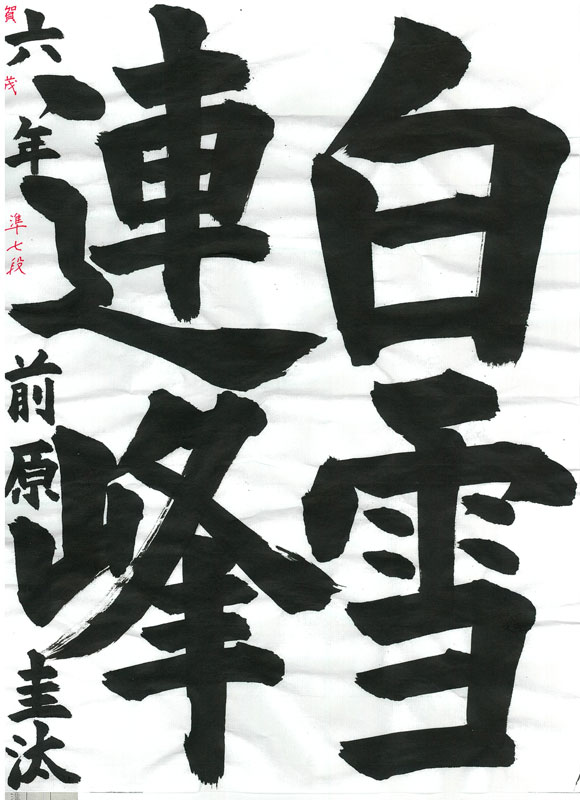 白雪
連峰
六年 前原圭汰
賀茂 準七段